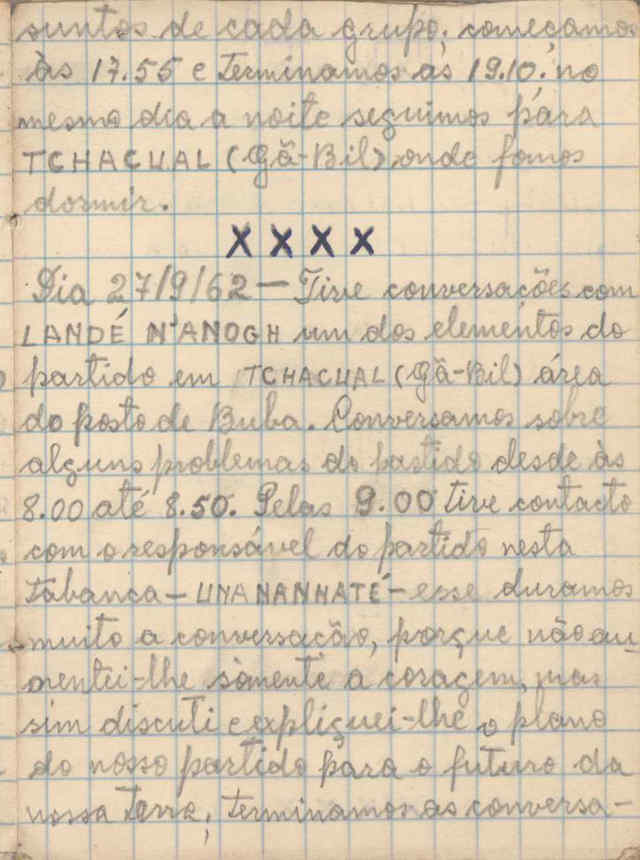 suntos de cada grupo, começamos
às 17.55 e terminamos às 19.10. no
mesmo dia a noite seguimos pára
TCHACUAL (Gã-Bil), onde fomos
dormir.
X X X X
Dia 27/9/62 — Tive conversações com
LANDÉ N'ANOGH um dos elementos do
partido em TCHACUAL (Gã-Bil) área
do posto de Buba. Conversamos sobre
alguns problemas do partido desde às
8.00 até 8.50. Pelas 9.00 tive contacto
com o responsável do partido nesta
tabanca — UNANANHATÉ — esse duramos
muito a conversação, porque não au-
mentei-lhe sòmente a coragem, mas
sim discuti e expliquei-lhe o plano
do nosso partido pára o futuro da
nossa Terra, terminamos as conversa-